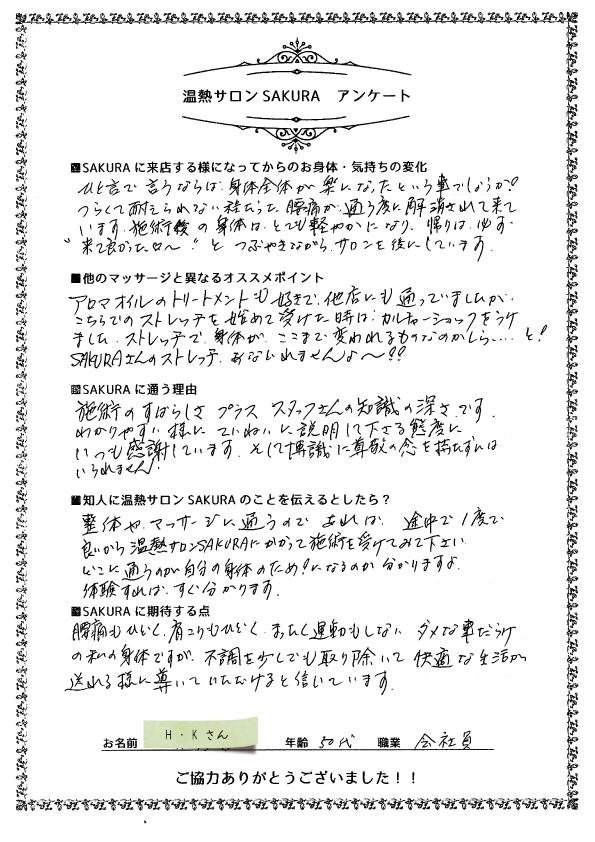 温熱サロン SAKURA アンケート
■SAKURA に来店する様になってからのお身体・気持ちの変化
ひと言で言うならば、身体全体が楽になったという事でしょうか?
つらくて耐えられない程だった腰痛が、通う度に解消されて来て
います。施術後の身体は、とても軽やかになり、帰りは、必ず
"来て良かった~~" と つぶやきながら、サロンを後にしています。
■他のマッサージと異なるオススメポイント
アロマオイルのトリートメントも好きで、他店にも通っていましたが、
こちらでのストレッチを始めて受けた時は、カルチャーショックをうけ
ました。ストレッチで、身体が、ここまで変われるものなのかしら…. と!
SAKURAさんのストレッチ、あなどれませんよ~!!
■SAKURA に通う理由
施術のすばらしさ プラス スタッフさんの知識の深さです。
わかりやすい様に ていねいに説明して下さる態度に
いつも感謝しています。そして博識に尊敬の念を持たずには
いられません!
■知人に温熱サロン SAKURA のことを伝えるとしたら?
整体や、マッサージに通うので あれば、途中で1度で
良いから温熱サロンSAKURAにかかって施術を受けてみて下さい
どこに通うのが自分の身体のため!になるのか分かりますよ。
体験すれば、すぐ分かります。
■SAKURA に期待する点
腰痛もひどく、肩こりもひどく、まったく運動もしない ダメな事だらけ
の私の身体ですが、不調を少しでも取り除いて 快適な生活が
送れる様に導いていただけると信じています。
お名前 H・Kさん 年齢 50代 職業 会社員
ご協力ありがとうございました!!